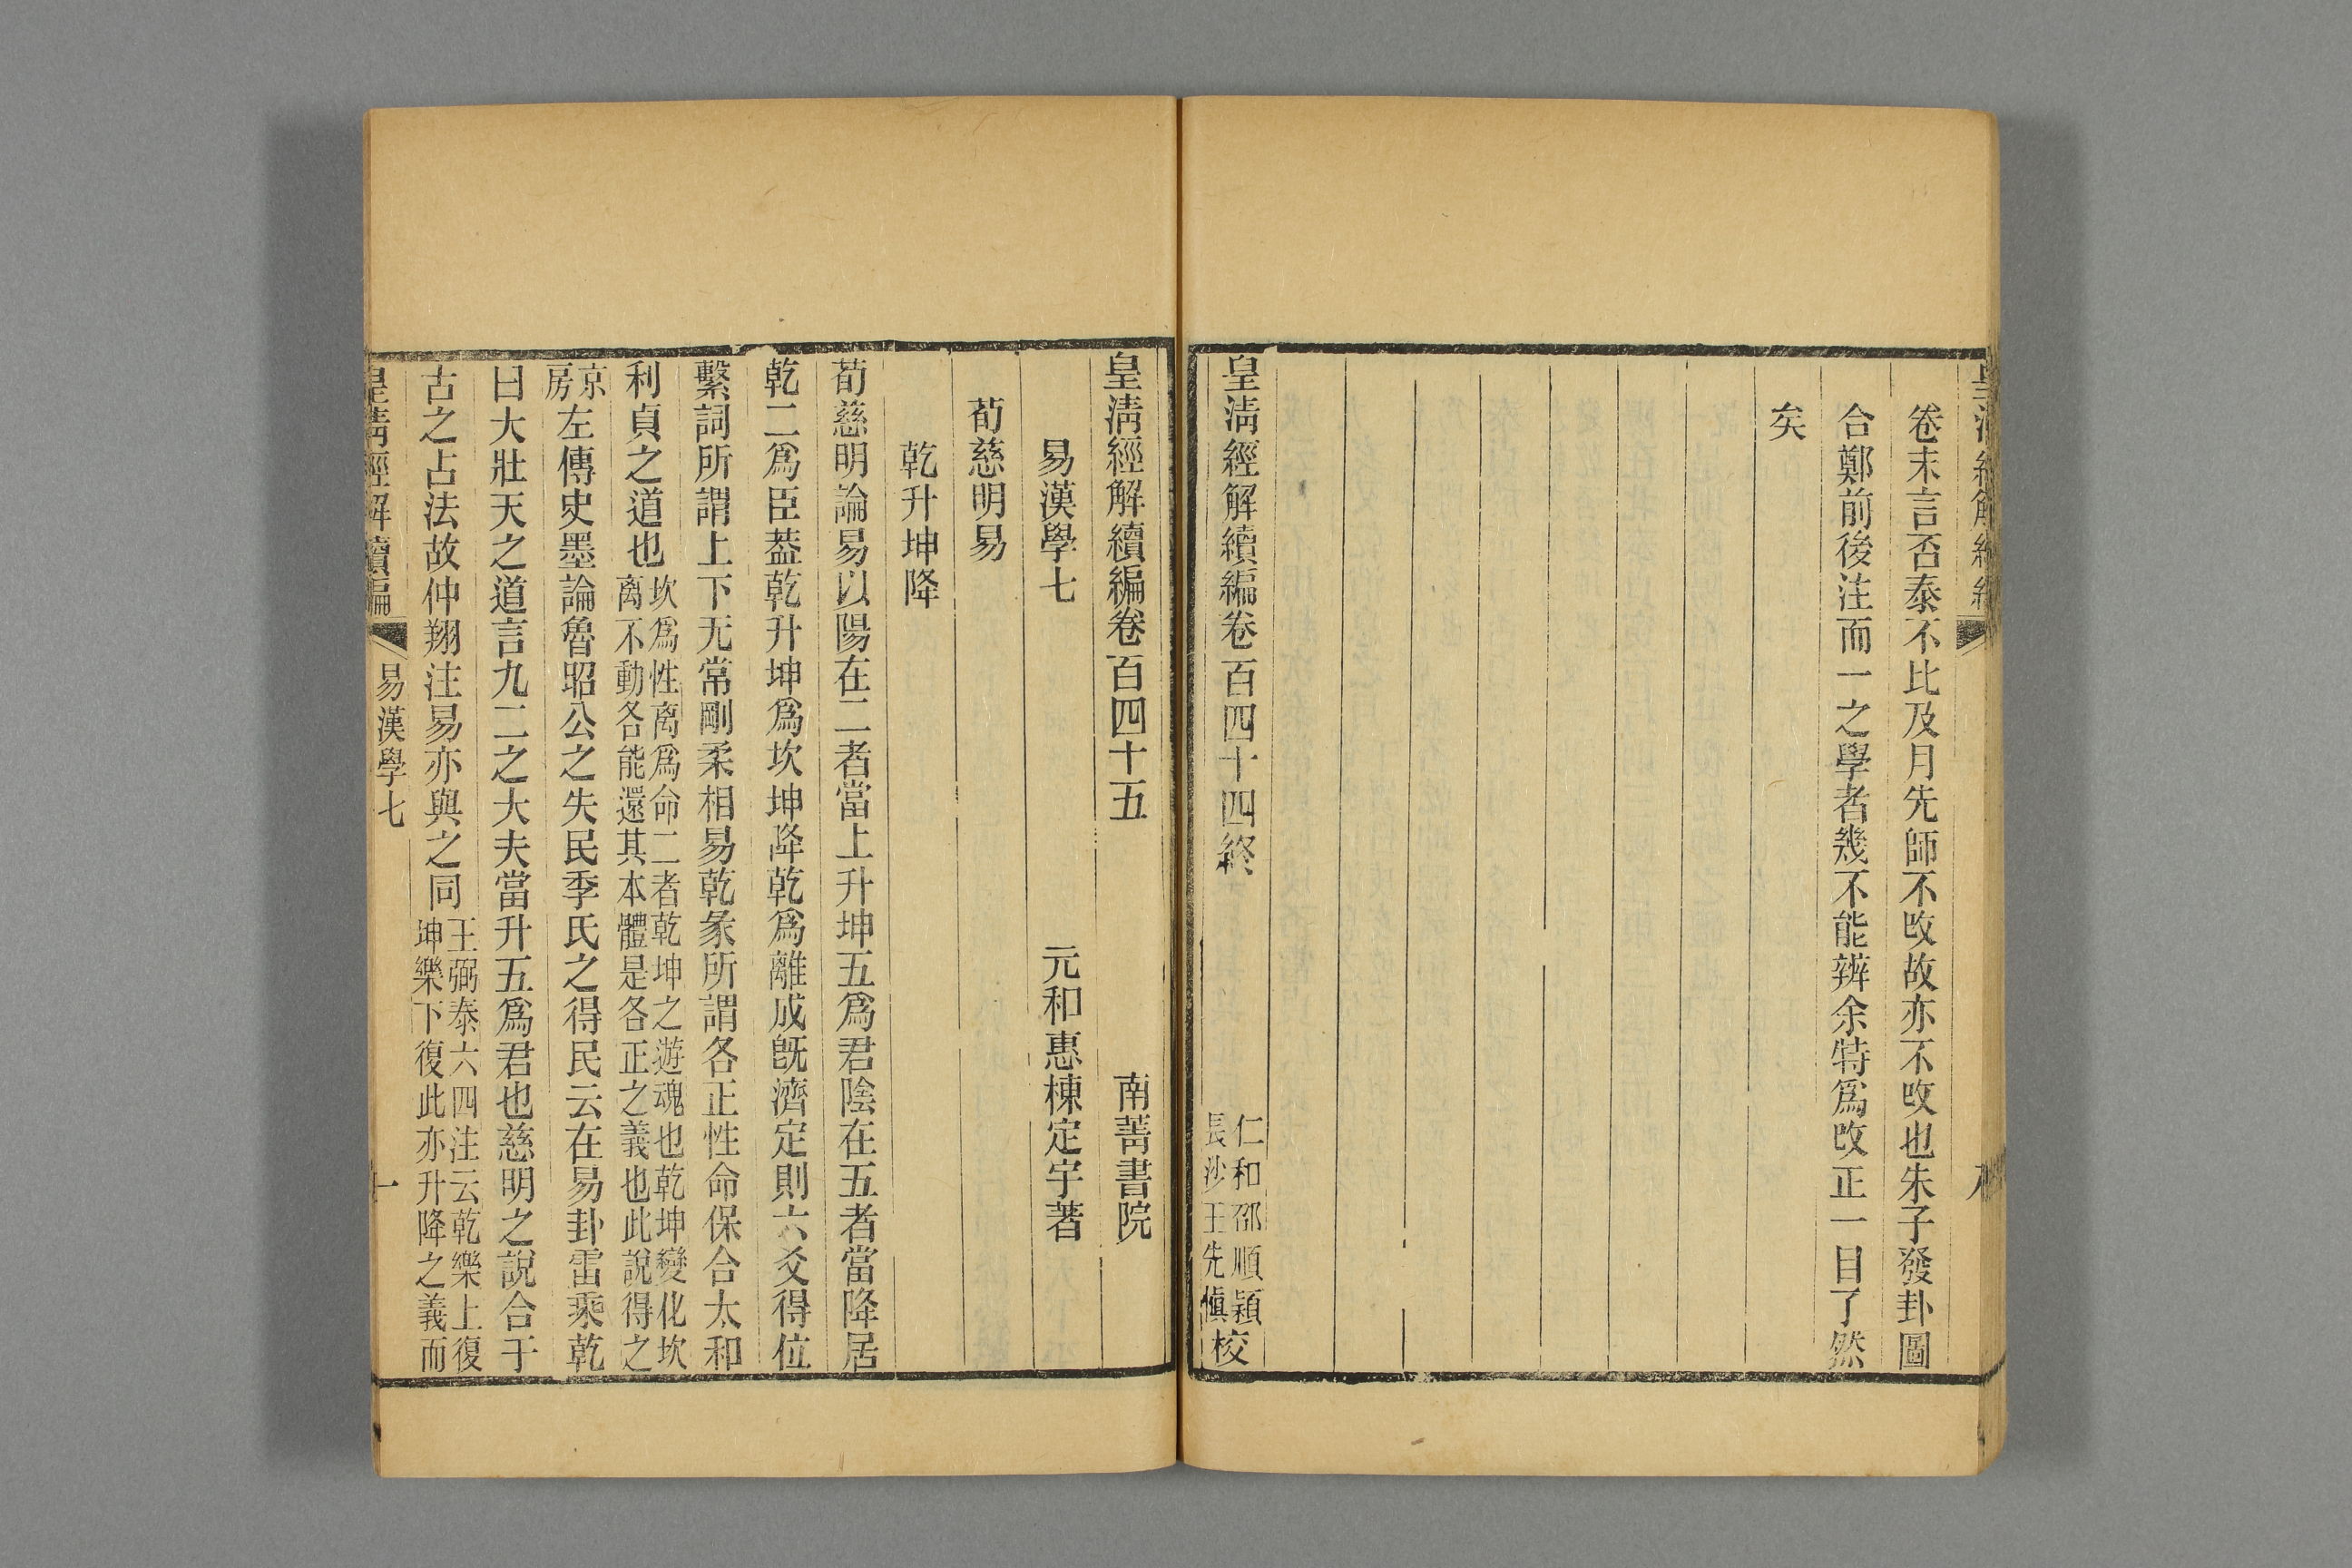 卷末言否泰不比及月先師不改故亦不改也朱子發卦圖
合鄭前後注而一之學者幾不能辨余特爲改正一目了然
矣
皇淸經解續編卷百四十四終
仁和邵順穎
長沙王先愼
校
皇淸經解續編卷百四十五
南菁書院
易漢學七
元和惠棟定宇著
荀慈明易
乾升坤降
荀慈明論易以陽在二者當上升坤五爲君陰在五者當降居
乾二爲臣葢乾升坤爲坎坤降乾爲離成旣濟定則六爻得位
繫詞所謂上下无常剛柔相易乾彖所謂各正性命保合太和
利貞之道也
坎爲性离爲命二者乾坤之遊魂也乾坤變化坎
离不動各能還其本體是各正之義也此說得之
京
房
左傳史墨論魯昭公之失民季氏之得民云在易卦雷乘乾
曰大壯天之道言九二之大夫當升五爲君也慈明之說合于
古之占法故仲翔注易亦與之同
王弼泰六四注云乾樂上復
坤樂下復此亦升降之義而
皇淸經解續編
易漢學七
一